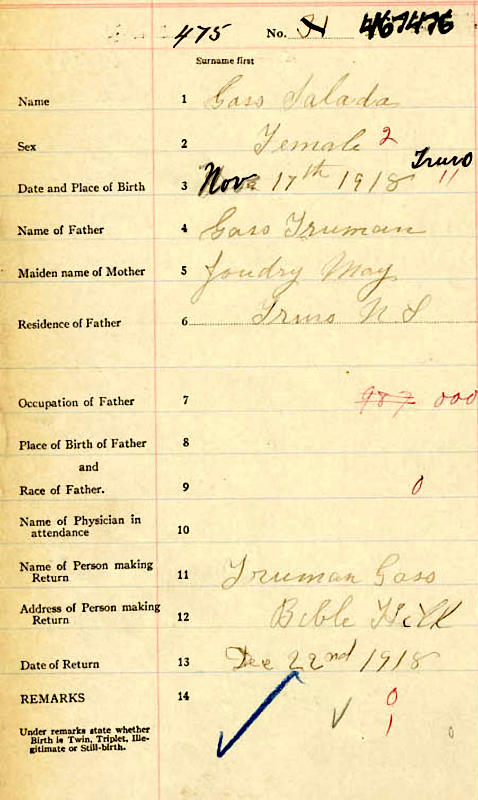 475 No. 31 467476
Surname first
Name 1 Gass Salada
Sex 2 Female 2
Truro
Date and Place of Birth 3 Nov 17th 1918 11
Name of Father 4 Gass Truman
Maiden name of Mother 5 Joudry May
Residence of Father 6 Truro N S
Occupation of Father 7 987 000
Place of Birth of Father 8
and
Race of Father. 9 0
Name of Physician in
attendance 10
Name of Person making
Return 11 Truman Gass
Address of Person making
Return 12 Bible Hill
Date of Return 13 Dec 22nd 1918
REMARKS 14 0
Under remarks state whether
Birth is Twin, Triplet, Ille-
gitimate or Still-birth.
1 0